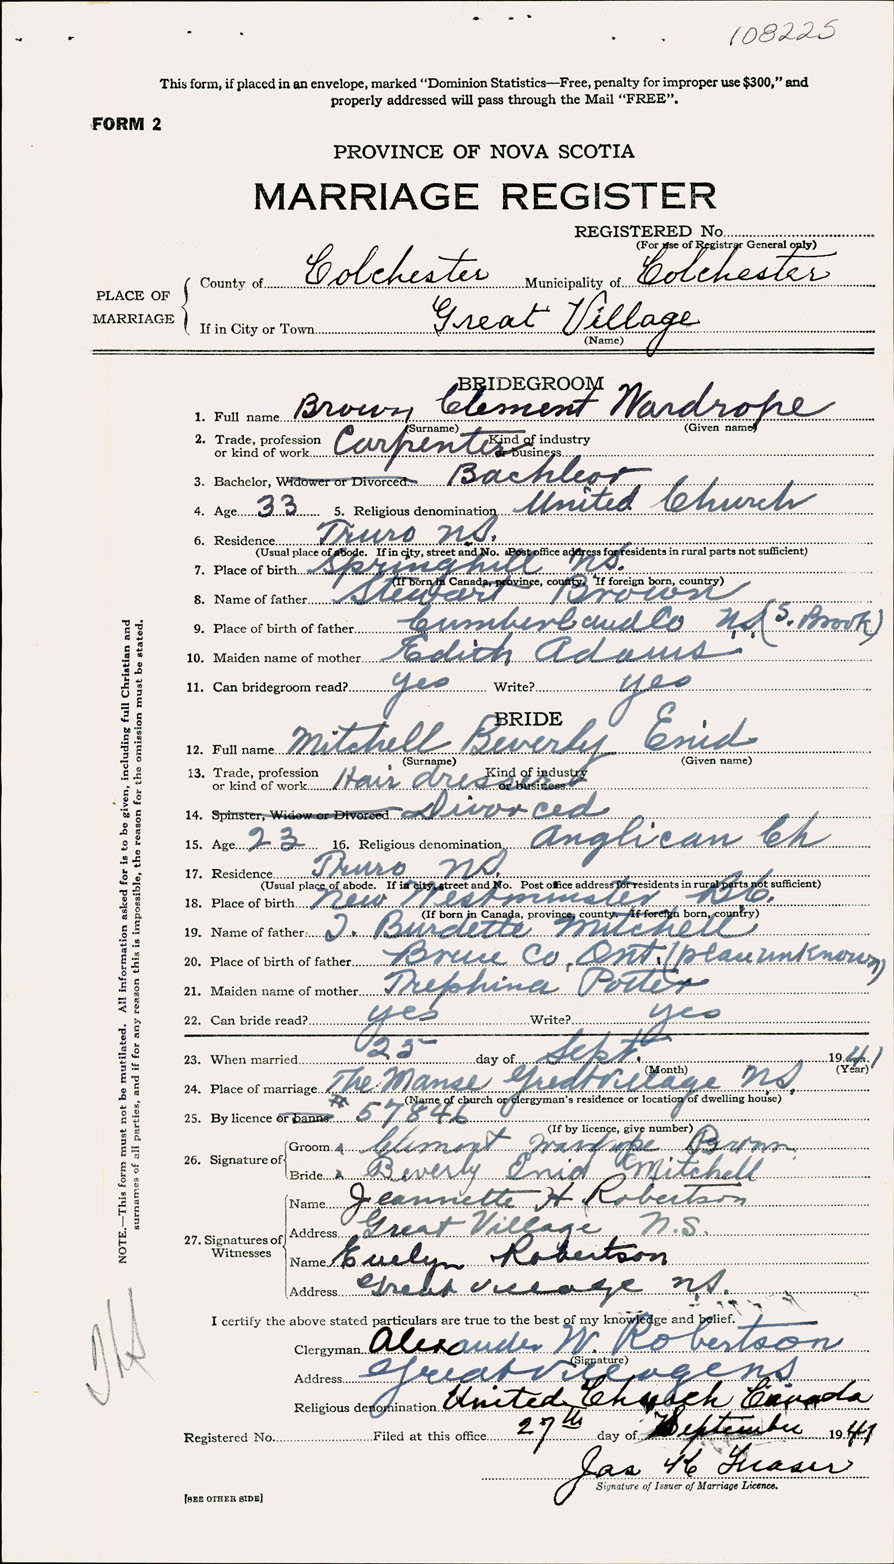 108225
This form, if placed in an envelope, marked "Dominion Statistics—Free, penalty for improper use $300," and
properly addressed will pass through the Mail "FREE".
FORM 2
PROVINCE OF NOVA SCOTIA
MARRIAGE REGISTER
REGISTERED No.
(For use of Registrar General only)
PLACE OF MARRIAGE
County of Colchester Municipality of Colchester
If in City or Town Great Village
(Name)
BRIDEGROOM
1. Full name Brown Clement Wardrope
(Surname) (Given name)
2. Trade, profession or kind of work Carpenter Kind of industry or business
3. Bachelor, Widower or Divorced Bachleor
4. Age 33 5. Religious denomination United Church
6. Residence Truro N.S.
(Usual place of abode. If in city, street and No. Post office address for residents in rural parts not sufficient)
7. Place of birth Springhill N.S.
(If born in Canada, province, county. If foreign born, country)
8. Name of father Stewart Brown
9. Place of birth of father Cumberland Co N.S. (S. Brook)
10. Maiden name of mother Edith Adams
11. Can bridegroom read? yes Write? yes
BRIDE
12. Full name Mitchell Beverly Enid
(Surname) (Given name)
13. Trade, profession or kind of work Hair dresser Kind of industry or business
14. Spinster, Widow or Divorced Divorced
15. Age 23 16. Religious denomination Anglican Ch
17. Residence Truro N.S.
(Usual place of abode. If in city, street and No. Post office address for residents in rural parts not sufficient)
18. Place of birth New Westminster B.C.
(If born in Canada, province, county. If foreign born, country)
19. Name of father J. Burdette Mitchell
20. Place of birth of father Bruce Co. Ont. (place unknown)
21. Maiden name of mother Trephina Potter
22. Can bride read? yes Write? yes
23. When married 25 day of Sept. 1941
(Month) (Year)
24. Place of marriage The Manse Great Village N.S.
(Name of church or clergyman's residence or location of dwelling house)
25. By licence or banns # 57846
(If by licence, give number)
26. Signature of Groom Clement Wardrope Brown
Bride Beverly Enid Mitchell
27. Signatures of Witnesses
Name Jeannette H Robertson
Address Great Village N.S.
Name Evelyn Robertson
Address Great Village N.S.
I certify the above stated particulars are true to the best of my knowledge and belief.
Clergyman Alexander W. Robertson
(Signature)
Address Great Village N S
Religious denomination United Church Canada
Registered No. Filed at this office 27th day of September 1941
Jas H Fraser
Signature of Issuer of Marriage Licence.
[SEE OTHER SIDE]
NOTE.—This form must not be mutilated. All information asked for is to be given, including full Christian and
surnames of all parties, and if for any reason this is impossible, the reason for the omission must be stated.